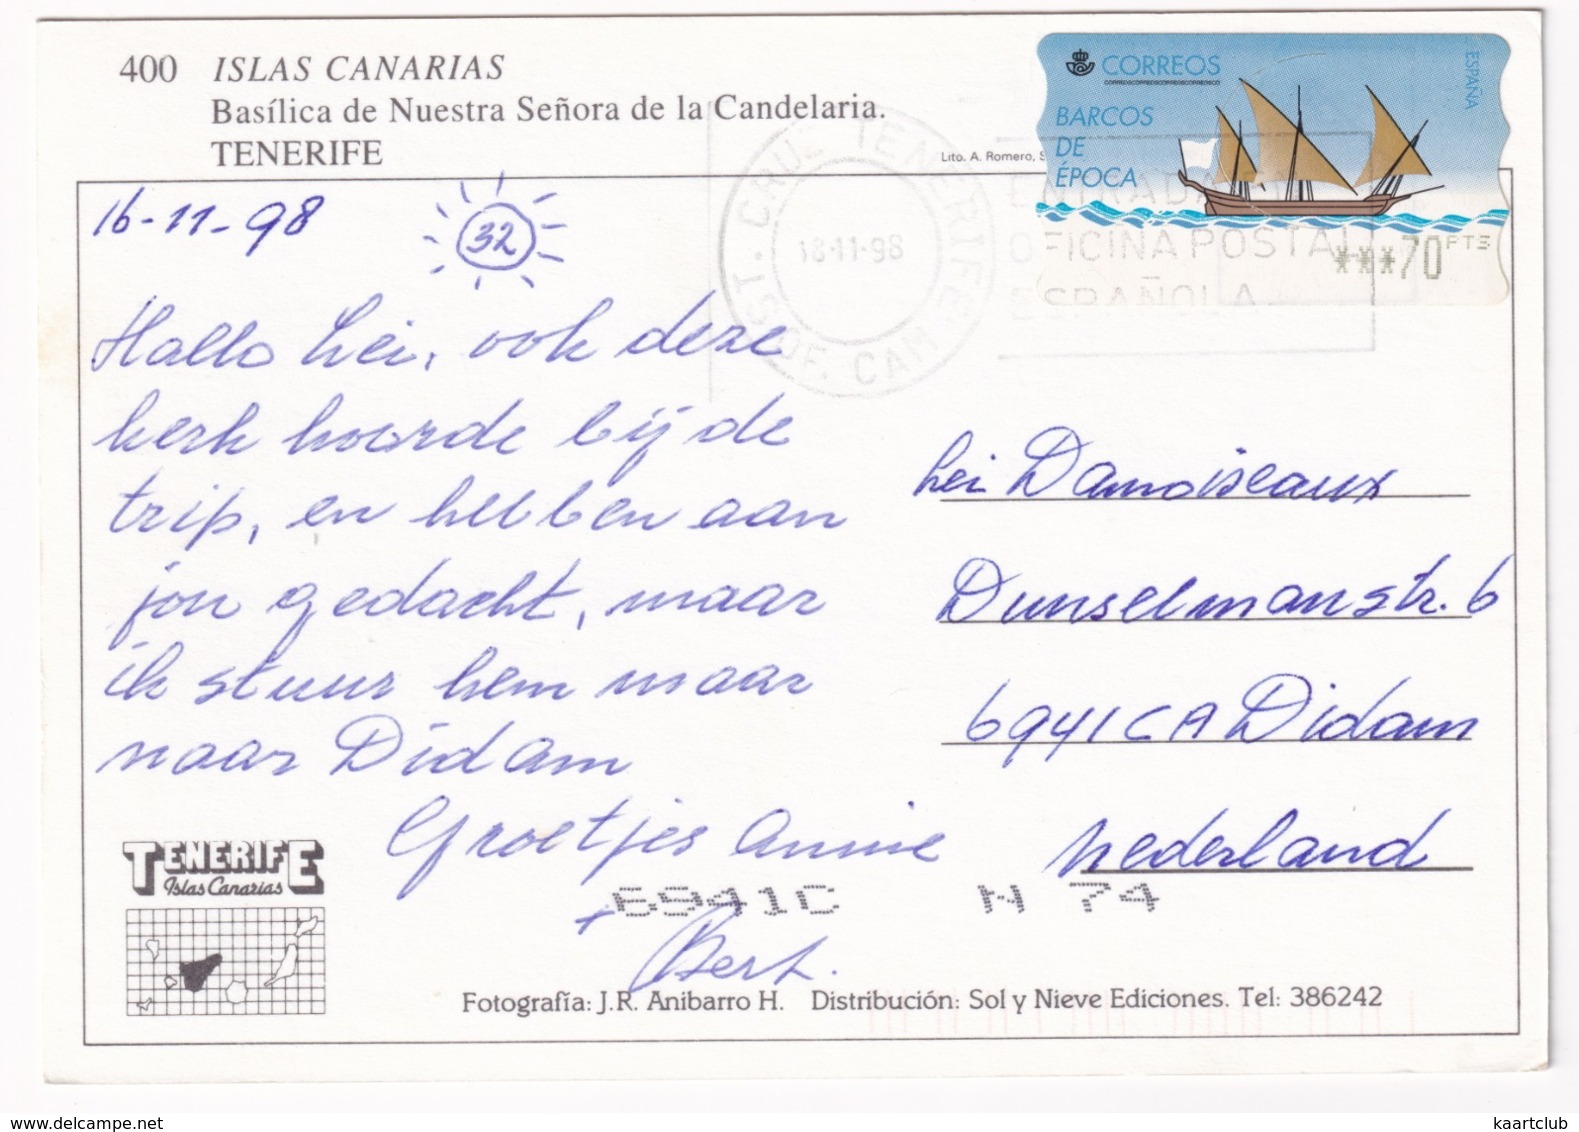 400 ISLAS CANARIAS
Basílica de Nuestra Señora de la Candelaria.
TENERIFE
Lito. A. Romero, S
CORREOS
BARCOS
DE
ÉPOCA
ESPAÑA
***70 PTS
ST. CRUZ TENERIFE
18-11-98
SUF. CAM
ENTRADA
OFICINA POSTAL
ESPAÑOLA
16-11-98
32
Hallo hei, ook deze
kerk hoorde bij de
trip, en hebben aan
jou gedacht, maar
ik stuur hem maar
naar Didam
Groetjes Annie
+ Bert.
hei Damoiseaux
Dunselmanstr. 6
6941CA Didam
Nederland
6941C N 74
TENERIFE
Islas Canarias
Fotografía: J.R. Anibarro H. Distribución: Sol y Nieve Ediciones. Tel: 386242
www.delcampe.net
kaartclub